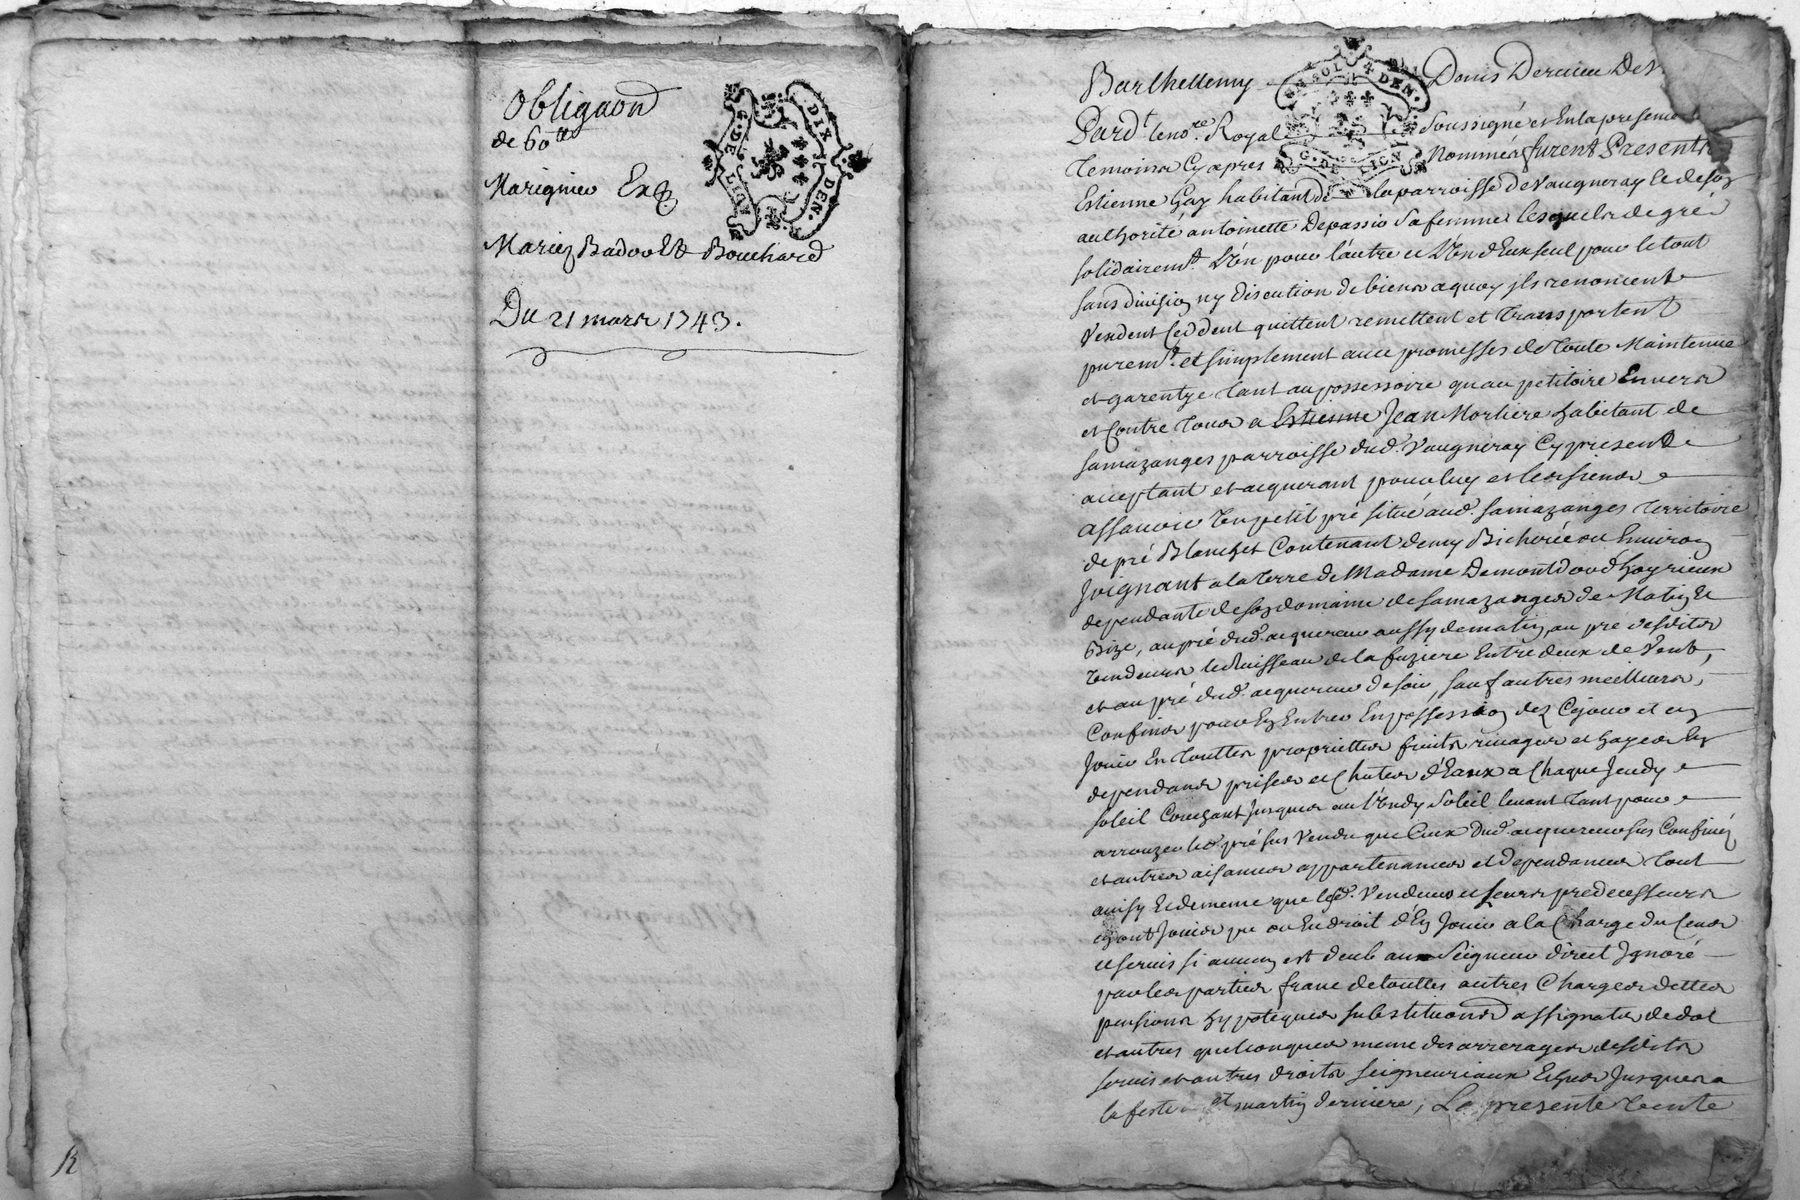 Obligaon
de 60tt
Marignieu Ex
Mariez Badoul & Bouchard
Du 21 mars 1743.
DIX DEN.
G. DE LION
R
Barthellemy Denis Dernieu
Pard.t le no.re Royal soussigné et En la presence
temoins Cy apres Nommés furent Presents
Estienne Gay habitant de la parroisse de Vaugneray Et de son
authorité antoinette Depassio sa femme lesquels de gré
solidairem.t L'Un pour l'autre et L'Un d'Eux seul pour le tout
sans division ny discution de biens a quoy ils renoncent
Vendent Ceddent quittent remettent et transportent
purem.t et simplement avec promesses de toute Maintenue
et garentye tant au possessoire qu'au petitoire Envers
et Contre tous a Estienne Jean Morliere habitant de
samazanges parroisse dud. Vaugneray Cy present
acceptant et acquerant pour luy et les siens
assavoir Un petit pré situé aud. samazanges territoire
de pré Blanchet Contenant demy Bicherée ou Environ
Joignant a la terre de Madame Demontdor d'hoyrieux
dependante de son domaine de samazanges de Matin Et
Bize, au pré dud. acquereur aussy de matin, au pré desdits
Vendeurs le Ruisseau de la fuziere Entre deux de Vent,
et au pré dud. acquereur de soir, sauf autres meilleurs
Confins pour En Entrer En possession dez Cejour et en
Jouir En touttes proprietter fruits rivages et hayes En
dependans prises et Chutes d'Eaux a Chaque Jeudy
soleil Couchant Jusques au Vendy soleil levant tant pour
arrouzer led. pré sus Vendu que Ceux dud. acquereur sus Confinez
et autres aisances appartenances et dependances tout
ainsy Et de meme que lesd. Vendeurs et leurs predecesseurs
En ont Jouis pu ou Eu droit d'En Jouir a la Charge du Cens
et servis si aucun est deub au Seigneur direct Ignoré
par les parties franc de touttes autres Charges dettes
pensions hypoteques substituons assignats de dot
et autres quelconques meme des arrerages desdits
servis et autres droits seigneuriaux Echus Jusques a
la feste St martin derniere, La presente Vente